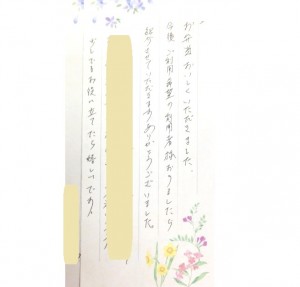 お弁当おいしくいただきました。
今後ご利用希望の利用者様おりましたら
紹介させていただきます。ありがとうございました。
少しでもお役に立てたら嬉しいです。